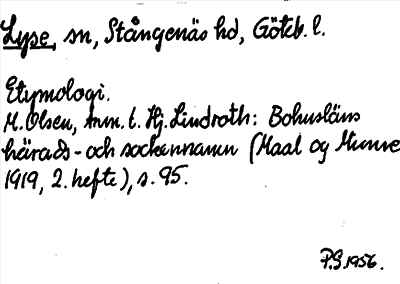 Lyse, sn, Stångenäs hd, Göteb. l.
Etymologi.
M. Olsen, Anm. t. Hj. Lindroth: Bohusläns
härads- och sockennamn (Maal og Minne
1919, 2. hefte), s. 95.
P.S. 1956.